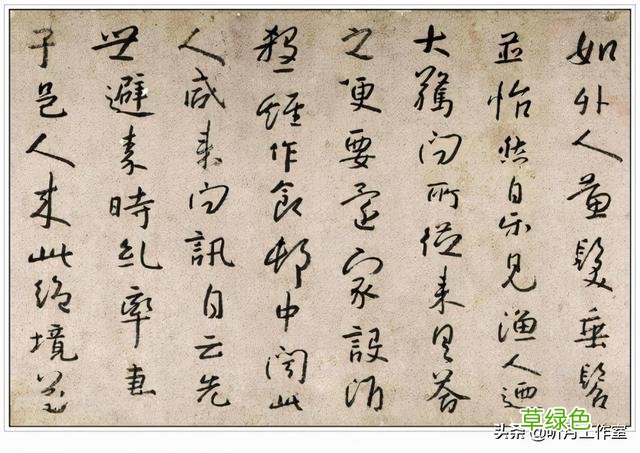 如外人黄髮垂髫
並怡然自樂見漁人廼
大驚问所從来具答
之便要還家設酒
殺雞作食邨中闻此
人咸来问訊自云先
世避秦時乱率妻
子邑人来此絶境不
草绿色
头条 @听月工作室